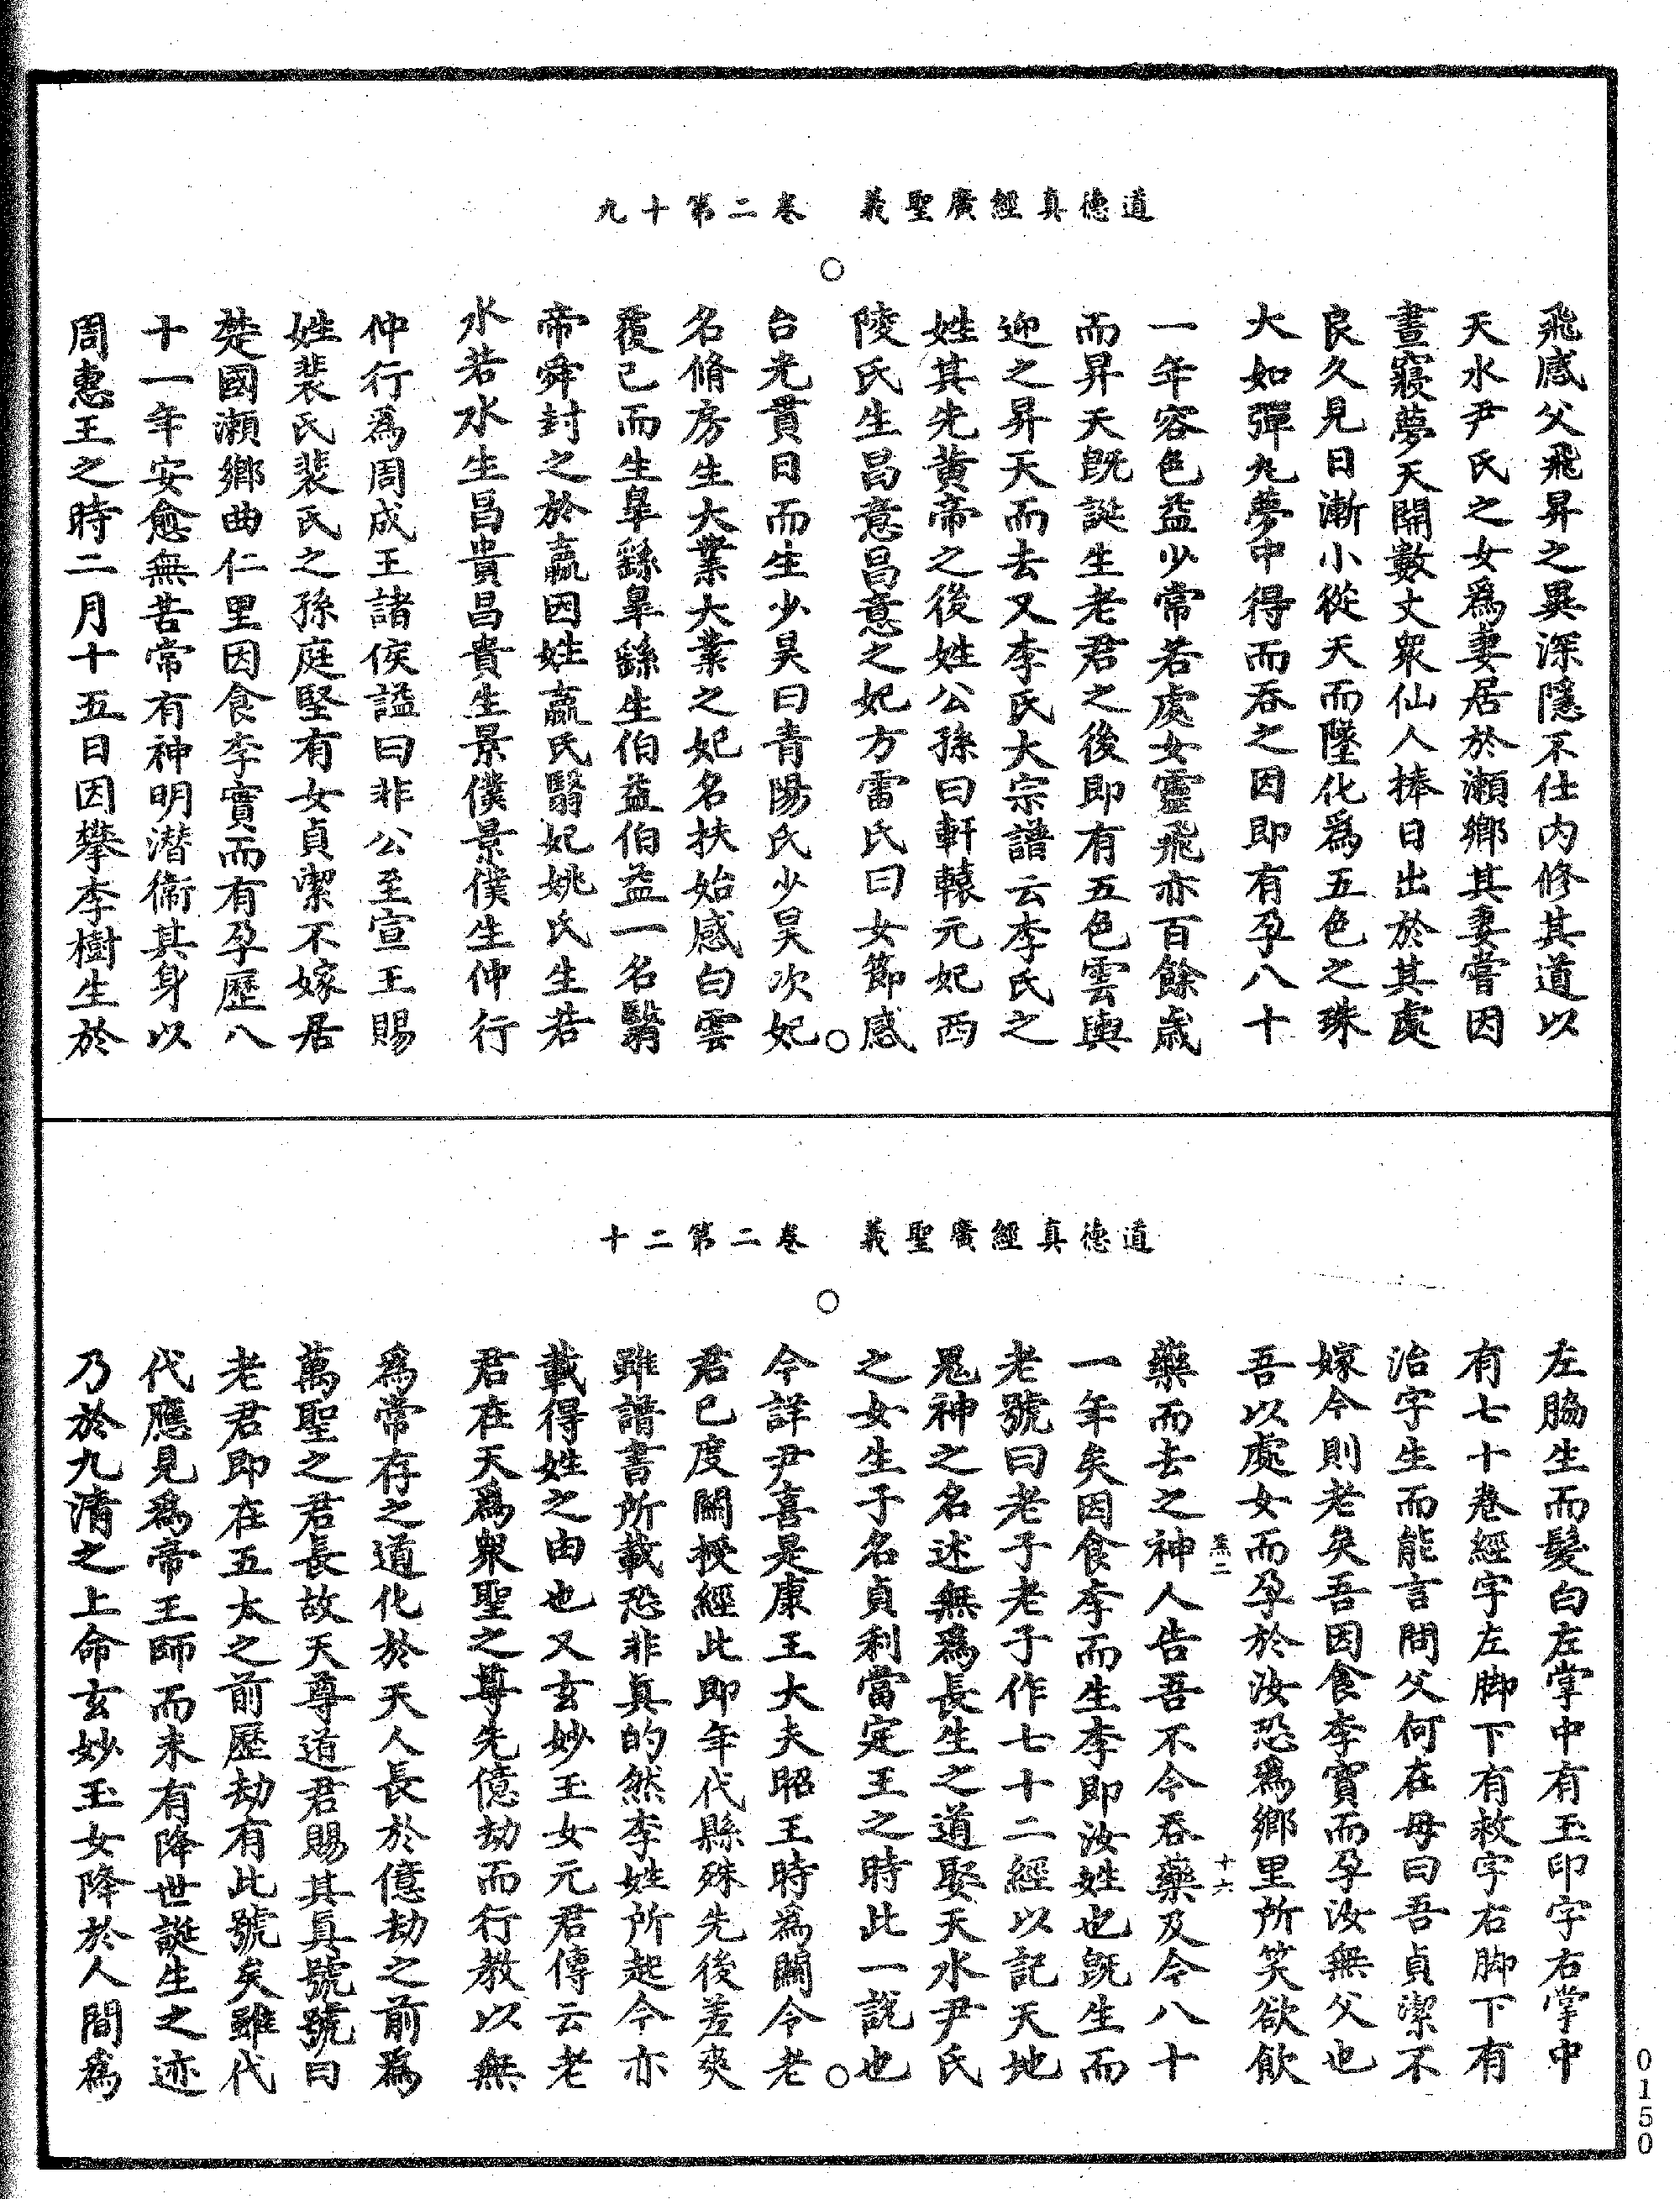 道德真經廣聖義　卷二第十九
飛感父飛昇之異深隱不仕內修其道以
天水尹氏之女爲妻居於瀨鄉其妻嘗因
晝寢夢天開數丈衆仙人捧日出於其處
良久見日漸小從天而墜化爲五色之珠
大如彈丸夢中得而吞之因即有孕八十
一年容色益少常若處女靈飛亦百餘歲
而昇天既誕生老君之後即有五色雲輿
迎之昇天而去又李氏大宗譜云李氏之
姓其先黃帝之後姓公孫曰軒轅元妃西
陵氏生昌意昌意之妃方雷氏曰女節感
台光貫日而生少昊曰青陽氏少昊次妃
名脩房生大業大業之妃名扶始感白雲
覆己而生臯繇臯繇生伯益伯益一名翳
帝舜封之於嬴因姓嬴氏翳妃姚氏生若
水若水生昌貴昌貴生景僕景僕生仲行
仲行爲周成王諸侯謚曰非公至宣王賜
姓裴氏裴氏之孫庭堅有女貞潔不嫁居
楚國瀨鄉曲仁里因食李實而有孕歷八
十一年安愈無苦常有神明潛衞其身以
周惠王之時二月十五日因攀李樹生於
道德真經廣聖義　卷二第二十
左脇生而髮白左掌中有玉印字右掌中
有七十卷經字左脚下有救字右脚下有
治字生而能言問父何在母曰吾貞潔不
嫁今則老矣吾因食李實而孕汝無父也
吾以處女而孕於汝恐爲鄉里所笑欲飲
羔二　十六
藥而去之神人告吾不令吞藥及今八十
一年矣因食李而生李即汝姓也既生而
老號曰老子老子作七十二經以記天地
鬼神之名述無爲長生之道娶天水尹氏
之女生子名貞利當定王之時此一說也
今詳尹喜是康王大夫昭王時爲關令老
君已度關授經此即年代縣殊先後差爽
雖譜書所載恐非眞的然李姓所起今亦
載得姓之由也又玄妙玉女元君傳云老
君在天爲衆聖之尊先億劫而行教以無
爲常存之道化於天人長於億劫之前爲
萬聖之君長故天尊道君賜其眞號號曰
老君即在五太之前歷劫有此號矣雖代
代應見爲帝王師而未有降世誕生之迹
乃於九清之上命玄妙玉女降於人間爲
0150